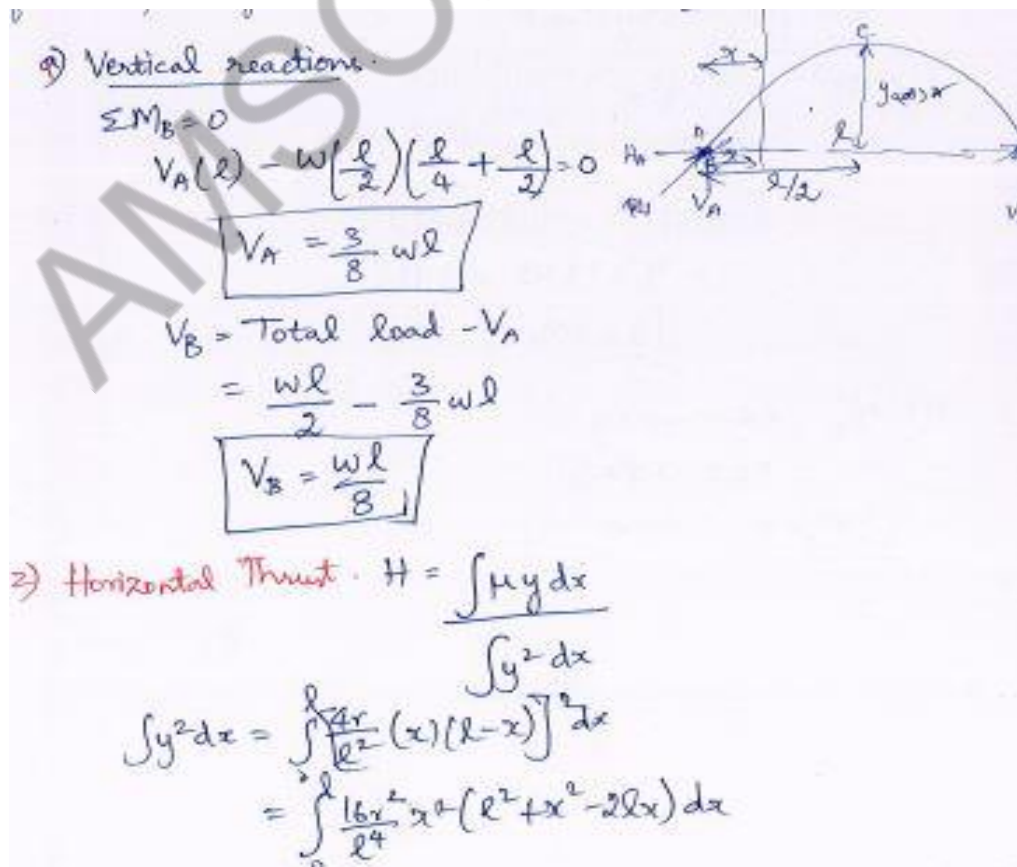 a) Vertical reactions.
ΣM_B = 0
V_A(l) - w(l/2)(l/4 + l/2) = 0
V_A = 3/8 wl
V_B = Total load - V_A
= wl/2 - 3/8 wl
V_B = wl/8
2) Horizontal Thrust. H = ∫μy dx / ∫y² dx
∫y²dx = ∫₀^l [4r/l² (x)(l-x)]² dx
= ∫₀^l 16r²/l⁴ x² (l² + x² - 2lx) dx
C
x
A
H_A
x
l
l/2
V_A
AMSC